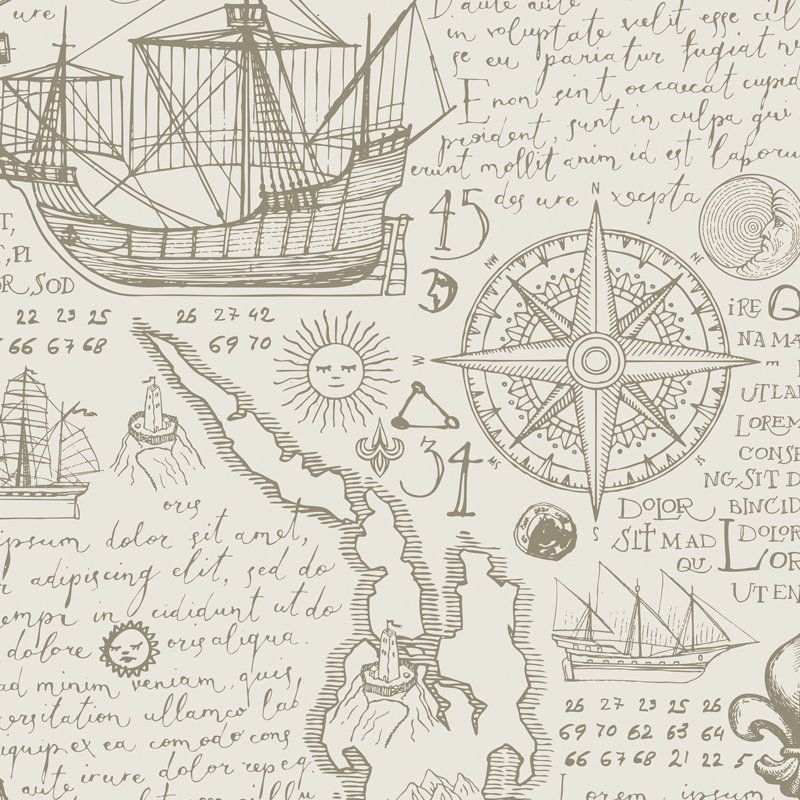 ure
D. aute aute
in voluptate velit esse cil
se eu pariatur fugiat n
E non sint occaecat cupid
proident, sunt in culpa qui
erunt mollit anim id est laporu
des ure xcepta
45
N
NW
NE
T,
,PI
R, SOD
22 23 25 26 27 42
66 67 68 69 70
W
E
iRE Q
NA MA
UT LA
LOREM
CONSE
NG SIT D
DOLOR BINCID
SIT M AD DOLOR
QU LOR
UT EN
34
S
oris
ipsum dolor sit amet,
adipiscing elit, sed do
tempi in cididunt ut do
dolore oris aliqua.
ad minim veniam, quis
ercitation ullamco lab
iquip ex ea comodo cons
aute irure dolor repeq.
26 27 23 25 26
69 70 62 63 64
66 67 68 21 22 5
Lorem ipsum